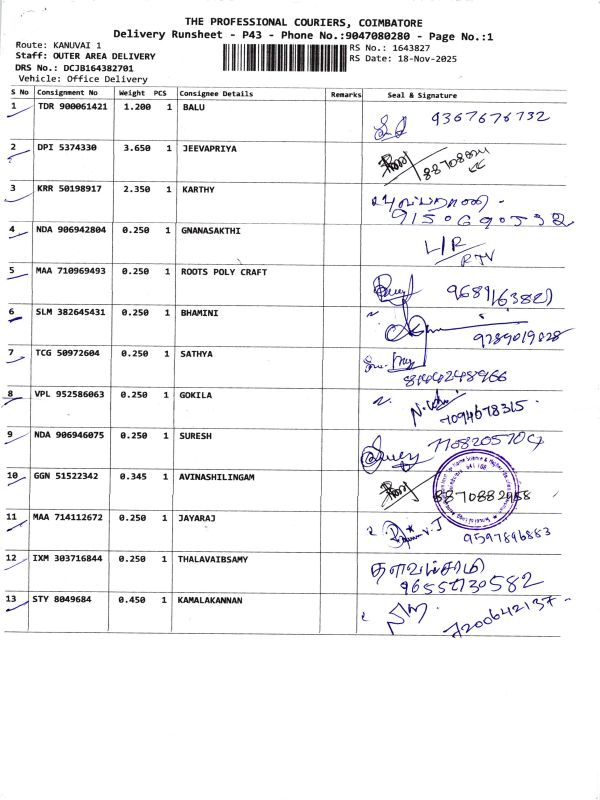 THE PROFESSIONAL COURIERS, COIMBATORE
Delivery Runsheet - P43 - Phone No.:9047080280 - Page No.:1
Route: KANUVAI 1
RS No.: 1643827
Staff: OUTER AREA DELIVERY
RS Date: 18-Nov-2025
DRS No.: DCJB164382701
Vehicle: Office Delivery
S No Consignment No Weight PCS Consignee Details Remarks Seal & Signature
1 TDR 900061421 1.200 1 BALU 9367676732
2 DPI 5374330 3.650 1 JEEVAPRIYA
3 KRR 50198917 2.350 1 KARTHY
9150690532
4 NDA 906942804 0.250 1 GNANASAKTHI L/R
RTV
5 MAA 710969493 0.250 1 ROOTS POLY CRAFT
6 SLM 382645431 0.250 1 BHAMINI
9789019828
7 TCG 50972604 0.250 1 SATHYA
8144248966
8 VPL 952586063 0.250 1 GOKILA
7094678315
9 NDA 906946075 0.250 1 SURESH
10 GGN 51522342 0.345 1 AVINASHILINGAM
11 MAA 714112672 0.250 1 JAYARAJ
9597896883
12 IXM 303716844 0.250 1 THALAVAIBSAMY தளவாய்சாமி
13 STY 8049684 0.450 1 KAMALAKANNAN
7200642137